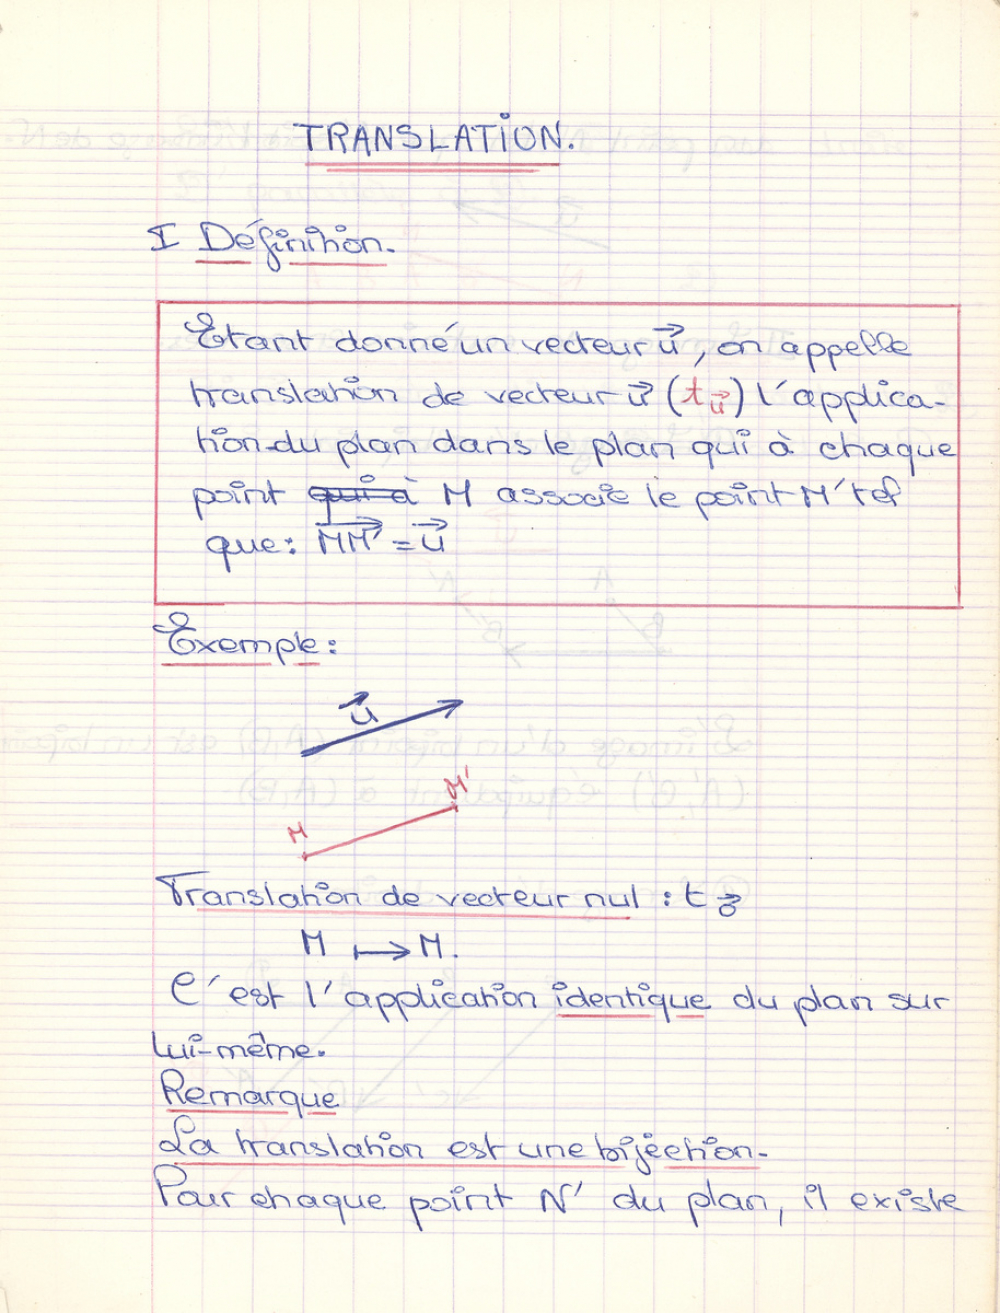 TRANSLATION.
I Définition.
Etant donné un vecteur u⃗, on appelle
translation de vecteur u⃗ (t u⃗) l'applica-
tion du plan dans le plan qui à chaque
point ~~qui à~~ M associe le point M' tel
que: MM'⃗ = u⃗
Exemple:
u⃗
M'
M
Translation de vecteur nul : t 0⃗
M ⟼ M.
C'est l'application identique du plan sur
lui-même.
Remarque
La translation est une bijection.
Pour chaque point N' du plan, il existe